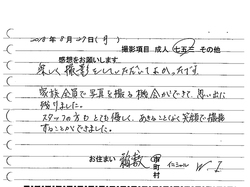 2018年8月27日(月)
撮影項目 成人 七五三 その他
感想をお願いします
楽しく撮影をしていただいてよかったです。
家族全員で写真を撮る機会ができて、思い出に
残りました。
スタッフの方もとても優しく、あきることなく笑顔で撮影
することができました。
お住まい 市町村 イニシャル W-I